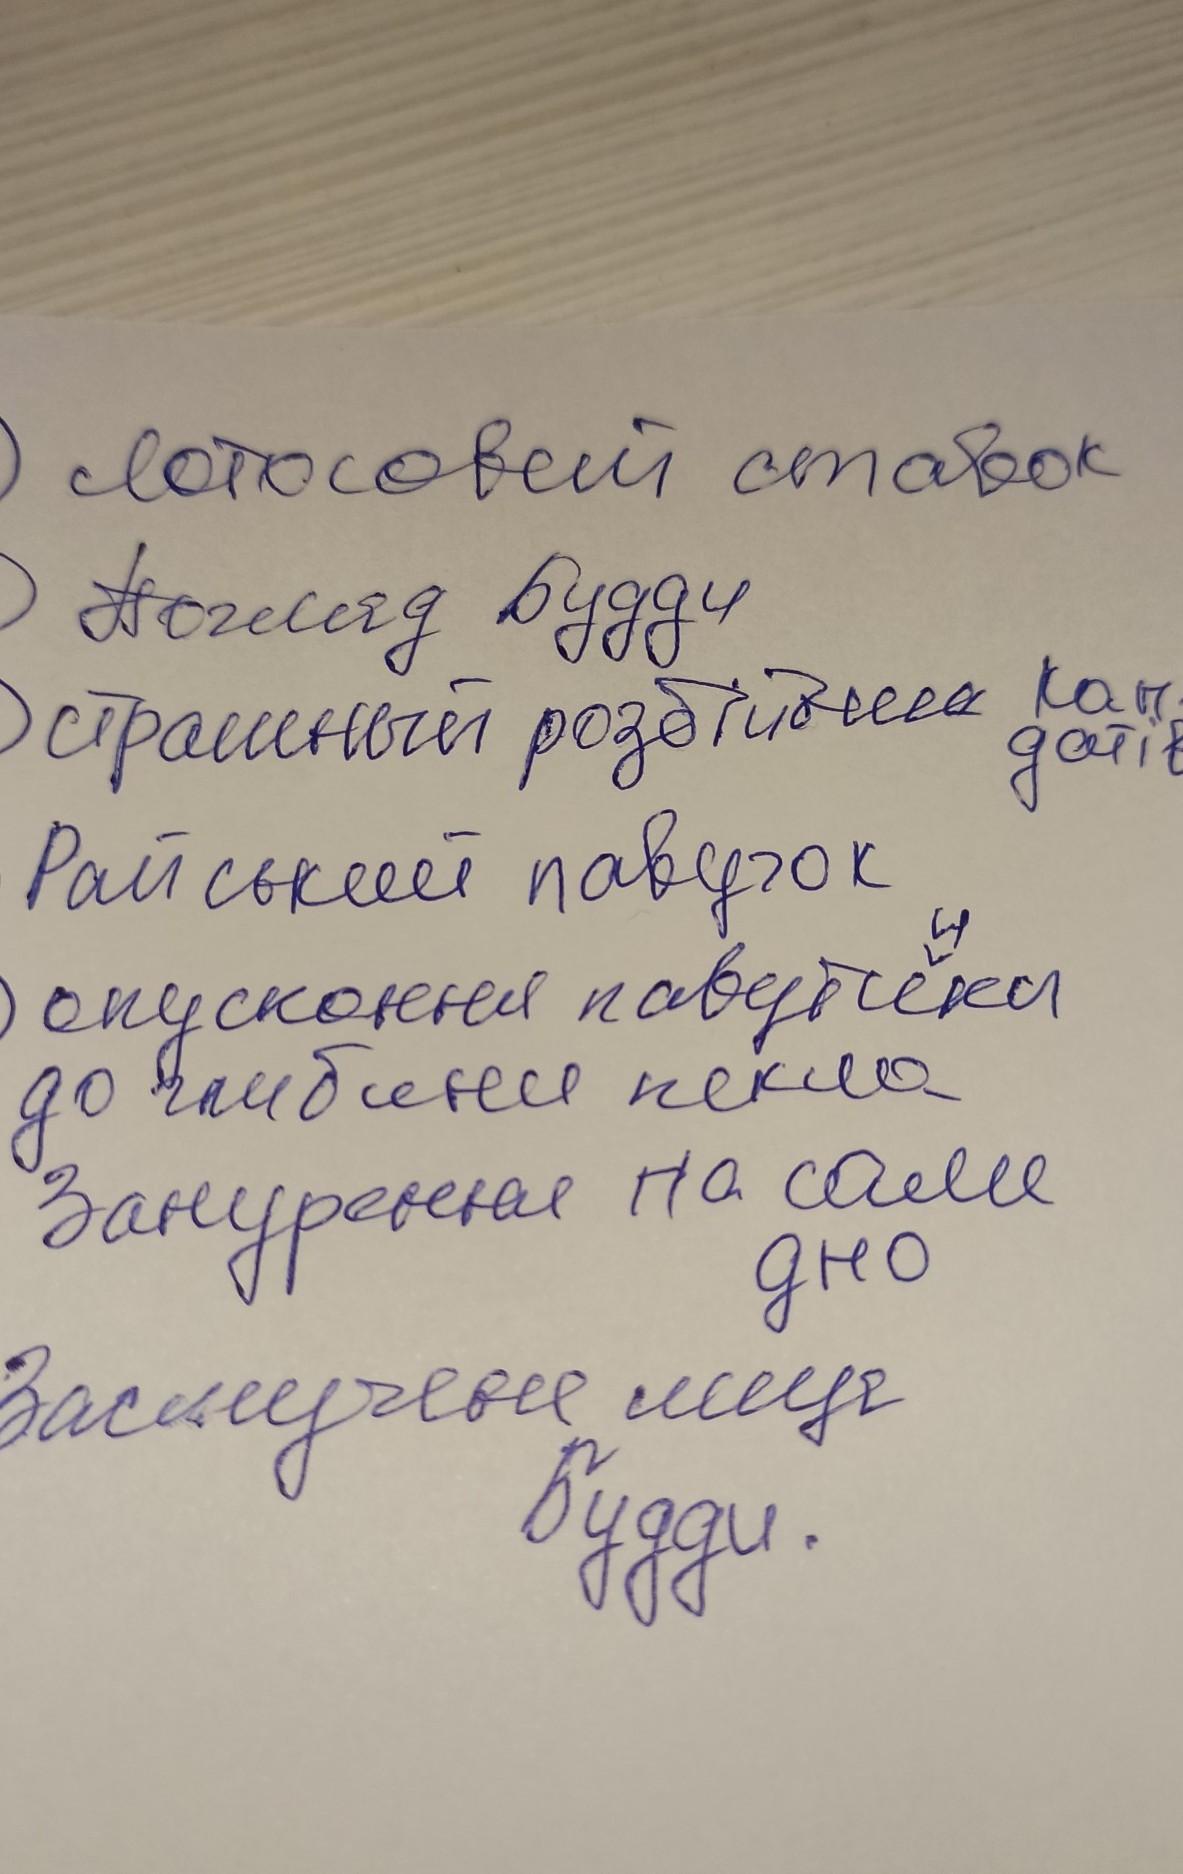 ) Лотосовий ставок
) Погляд Будди
) страшный розбійник Кан-
датів
Райський павучок
) опускання павутинки
до глибини пекла
Занурення на саме
дно
Засмучене лице
Будди.